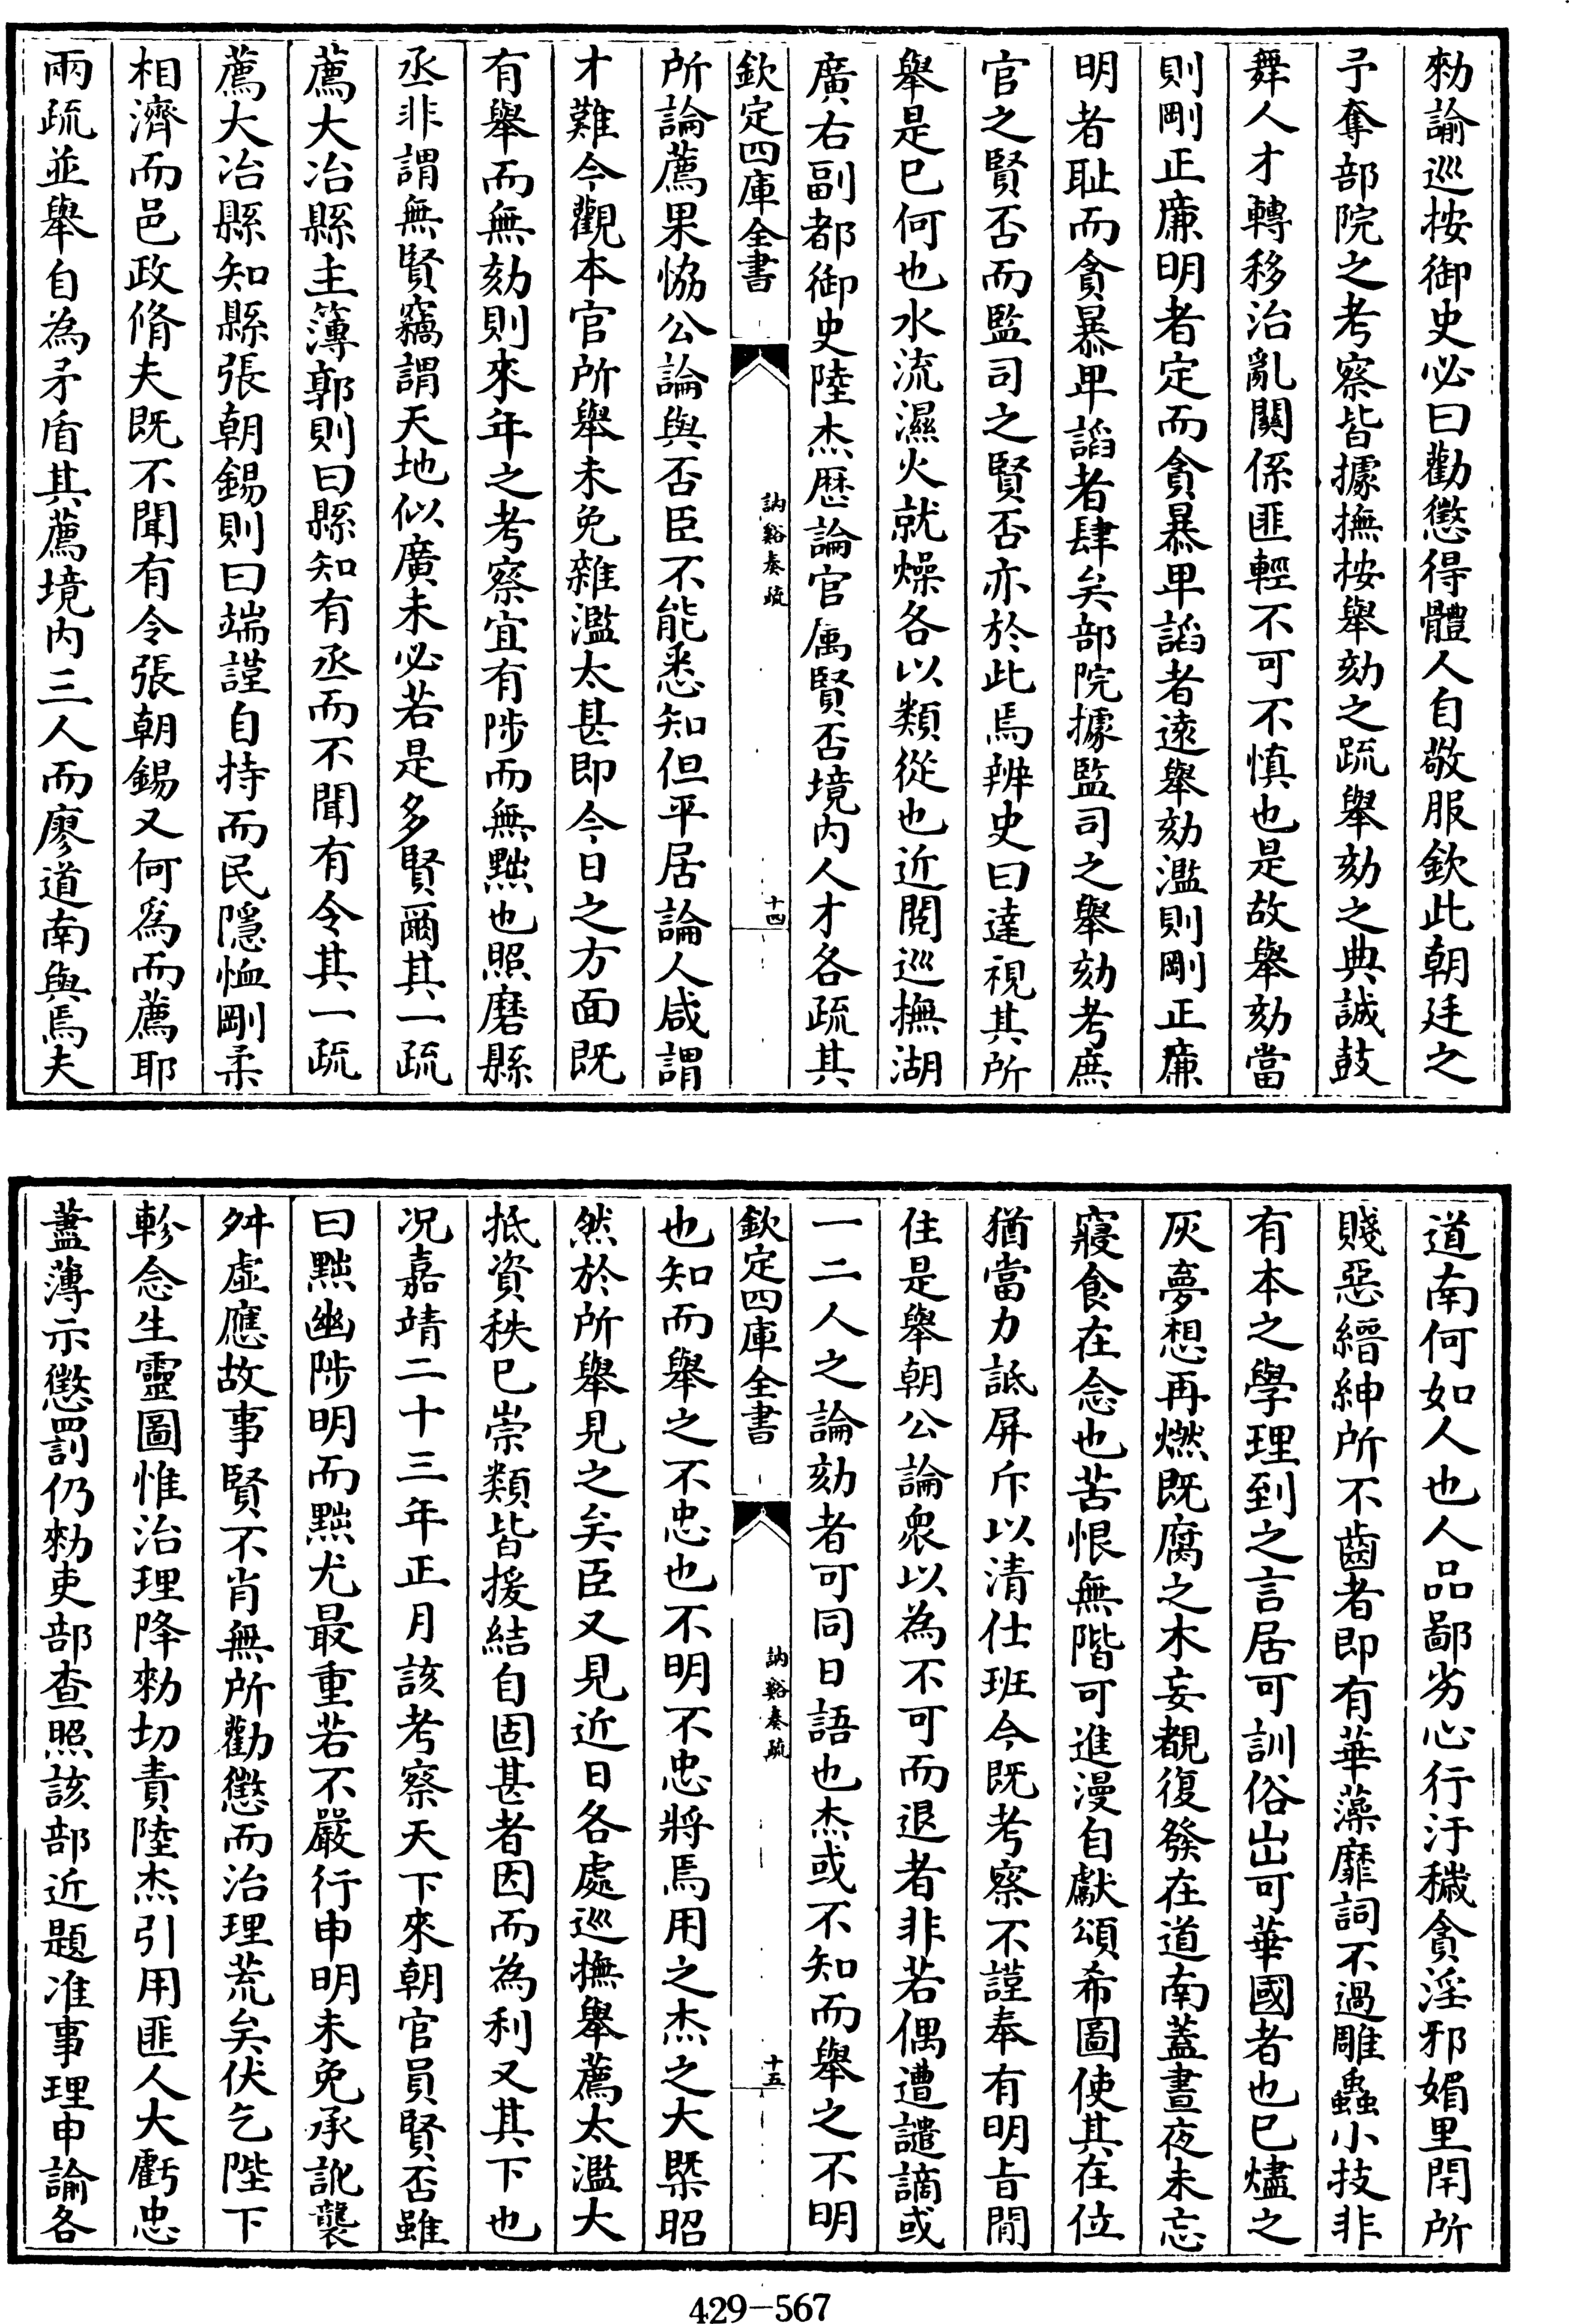 勑諭巡按御史必曰勸懲得體人自敬服欽此朝廷之
予奪部院之考察皆據撫按舉劾之疏舉劾之典誠鼓
舞人才轉移治亂關係匪輕不可不慎也是故舉劾當
則剛正廉明者定而貪暴卑謟者遠舉劾濫則剛正廉
明者耻而貪暴卑謟者肆矣部院據監司之舉劾考庶
官之賢否而監司之賢否亦於此焉辨史曰達視其所
舉是已何也水流濕火就燥各以類從也近閱巡撫湖
廣右副都御史陸杰歴論官属賢否境内人才各疏其
欽定四庫全書
訥谿奏疏
十四
所論薦果恊公論與否臣不能悉知但平居論人咸謂
才難今觀本官所舉未免雜濫太甚即今日之方面既
有舉而無劾則來年之考察宜有陟而無黜也照磨縣
丞非謂無賢竊謂天地似廣未必若是多賢爾其一疏
薦大冶縣主簿郭則曰縣知有丞而不聞有令其一疏
薦大冶縣知縣張朝錫則曰端謹自持而民隱恤剛柔
相濟而邑政脩夫既不聞有令張朝錫又何為而薦耶
兩疏並舉自為矛盾其薦境内三人而廖道南與焉夫
道南何如人也人品鄙劣心行汙穢貪淫邪媚里閈所
賤惡縉紳所不齒者即有華藻靡詞不過雕蟲小技非
有本之學理到之言居可訓俗出可華國者也已燼之
灰夢想再燃既腐之木妄覩復發在道南蓋晝夜未忘
寢食在念也苦恨無階可進漫自獻頌希圖使其在位
猶當力詆屏斥以清仕班今既考察不謹奉有明旨閒
住是舉朝公論衆以為不可而退者非若偶遭譴謫或
一二人之論劾者可同日語也杰或不知而舉之不明
欽定四庫全書
訥谿奏疏
十五
也知而舉之不忠也不明不忠將焉用之杰之大槩昭
然於所舉見之矣臣又見近日各處巡撫舉薦太濫大
抵資秩已崇類皆援結自固甚者因而為利又其下也
况嘉靖二十三年正月該考察天下來朝官員賢否雖
曰黜幽陟明而黜尤最重若不嚴行申明未免承訛襲
舛虛應故事賢不肖無所勸懲而治理荒矣伏乞陛下
軫念生靈圖惟治理降勑切責陸杰引用匪人大虧忠
藎薄示懲罰仍勑吏部查照該部近題准事理申諭各
429-567